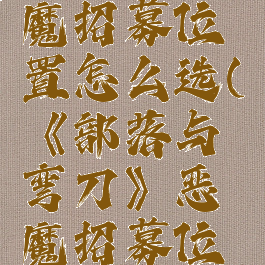 魔招募位
置怎么选(
《部落与
弯刀》恶
魔招募位